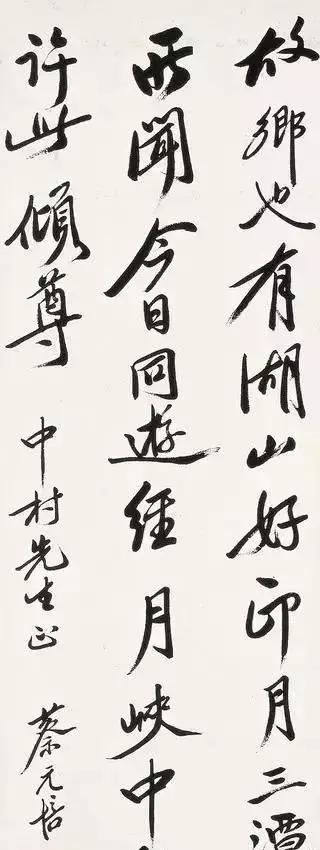 故鄉也有湖山好印月三潭
所聞今日同遊經月峽中
許此傾尊
中村先生正
蔡元培